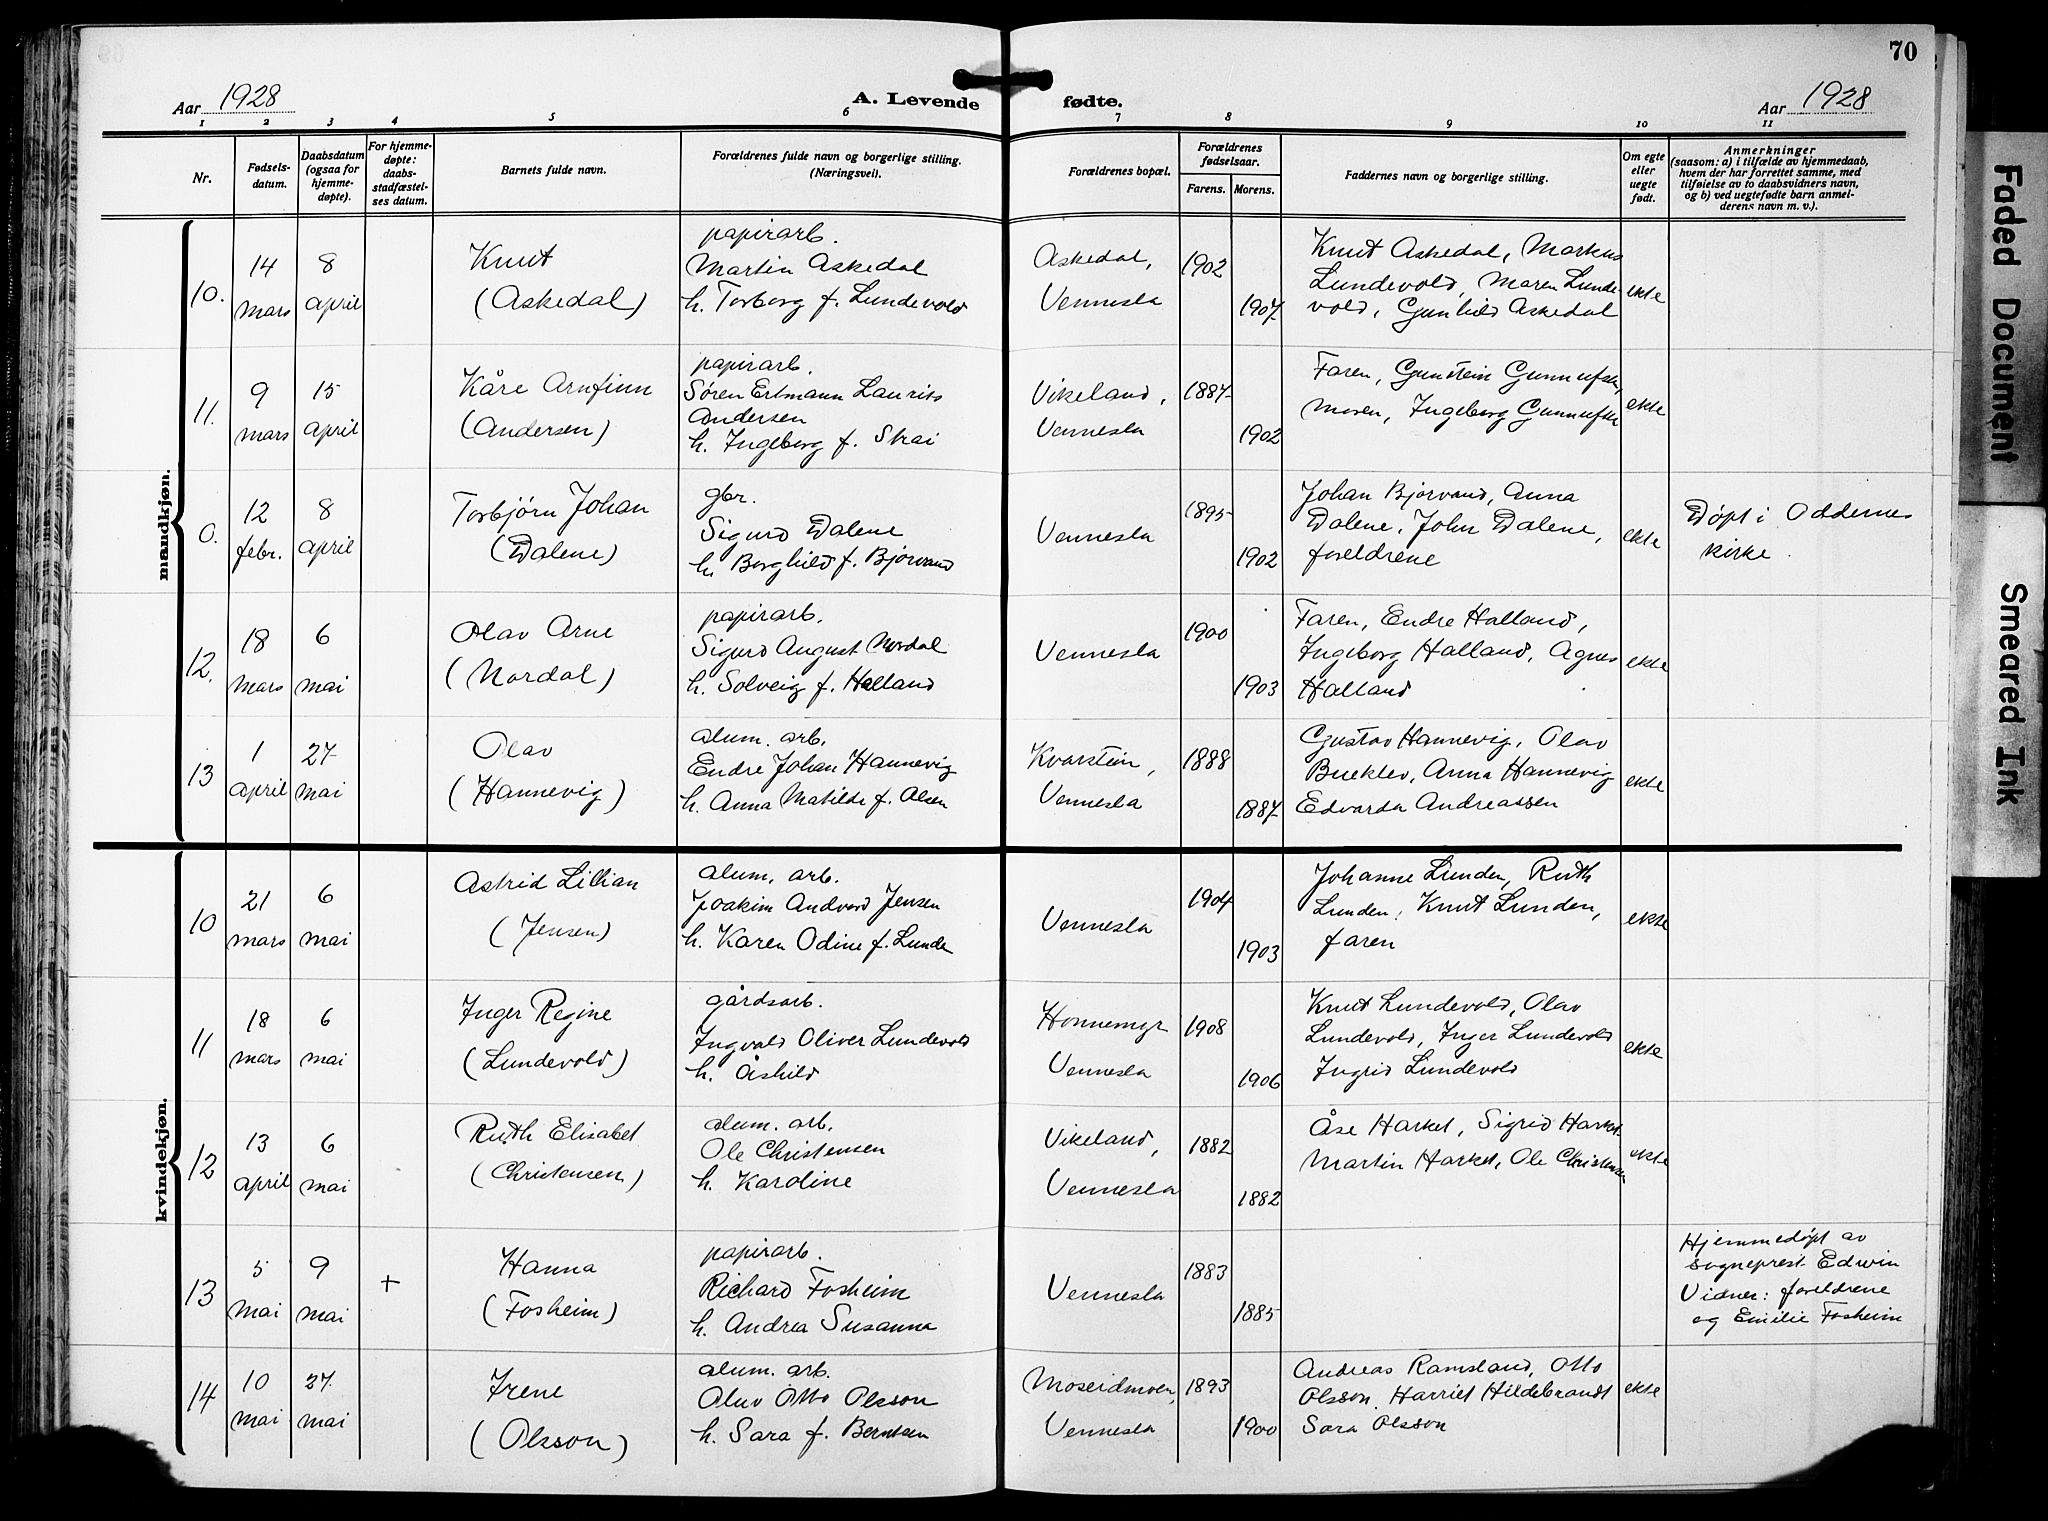 70
Aar 1928
A. Levende fødte.
Aar 1928
1 2 3 4 5 6 7 8 9 10 11
Nr.
Fødsels-
datum.
Daabsdatum
(ogsaa for
hjemme-
døpte).
For hjemme-
døpte:
daabs-
stadfæstel-
ses datum.
Barnets fulde navn.
Forældrenes fulde navn og borgerlige stilling.
(Næringsvei).
Forældrenes bopæl.
Forældrenes
fødselsaar.
Farens. Morens.
Faddernes navn og borgerlige stilling.
Om egte
eller
uegte
født.
Anmerkninger
(saasom: a) i tilfælde av hjemmedaab,
hvem der har forrettet samme, med
tilføielse av to daabsvidners navn,
og b) ved uegtefødte barn anmel-
derens navn m. v.).
mandkjøn.
10.
14
mars
8
april
Knut
(Askedal)
papirarb.
Martin Askedal
h. Torborg f. Lundevold
Askedal,
Vennesla
1902
1907
Knut Askedal, Markus
Lundevold, Maren Lunde-
vold, Gunhild Askedal
ekte
11.
9
mars
15
april
Kåre Arnfinn
(Andersen)
papirarb.
Søren Ertmann Laurits
Andersen
h. Ingeborg f. Skai
Vikeland,
Vennesla
1887
1902
Faren, Gunstein
Moren, Ingeborg
ekte
0.
12
febr.
8
april
Torbjørn Johan
(Dalene)
gbr.
Sigurd Dalene
h. Borghild f. Bjorvand
Vennesla
1895
1902
Johan Bjorvand, Anna
Dalene, John Dalene,
foreldrene
ekte
Døpt i Oddernes
kirke.
12.
18
mars
6
mai
Olav Arne
(Nordal)
papirarb.
Sigurd August Nordal
h. Solveig f. Halland
Vennesla
1900
1903
Faren, Endre Halland,
Ingeborg Halland, Agnes
Halland
ekte
13
1
april
27
mai
Olav
(Hannevig)
alum. arb.
Endre Johan Hannevig
h. Anna Matilde f. Olsen
Kvarstein,
Vennesla
1888
1887
Gustav Hannevig, Olav
Bueklev, Anna Hannevig
Edvarda Andreassen
ekte
kvindekjøn.
10
21
mars
6
mai
Astrid Lillian
(Jensen)
alum. arb.
Joakim Andvord Jensen
h. Karen Odine f. Lunde
Vennesla
1904
1903
Johanne Lunden, Ruth
Lunden, Knut Lunden,
faren
ekte
11
18
mars
6
mai
Inger Regine
(Lundevold)
gårdsarb.
Ingvald Oliver Lundevold
h. Åshild
Honnemyr
Vennesla
1908
1906
Knut Lundevold, Olav
Lundevold, Inger Lundevold
Ingrid Lundevold
ekte
12
13
april
6
mai
Ruth Elisabet
(Christensen)
alum. arb.
Ole Christensen
h. Karoline
Vikeland,
Vennesla
1882
1882
Åse Harket, Sigrid Harket
Martin Harket, Ole Christensen
ekte
13
5
mai
9
mai
+
Hanna
(Fosheim)
papirarb.
Richard Fosheim
h. Andrea Susanna
Vennesla
1883
1885
Hjemmedøpt av
sogneprest Edwin
Vidner: foreldrene
og Emilie Fosheim
14
10
mai
27
mai
Irene
(Olsson)
alum. arb.
Olav Otto Olsson
h. Sara f. Berntsen
Moseidmoen,
Vennesla
1893
1900
Andreas Ramsland, Otto
Olsson, Harriet Hildebrandt
Sara Olsson
ekte
Faded Document
Smeared Ink